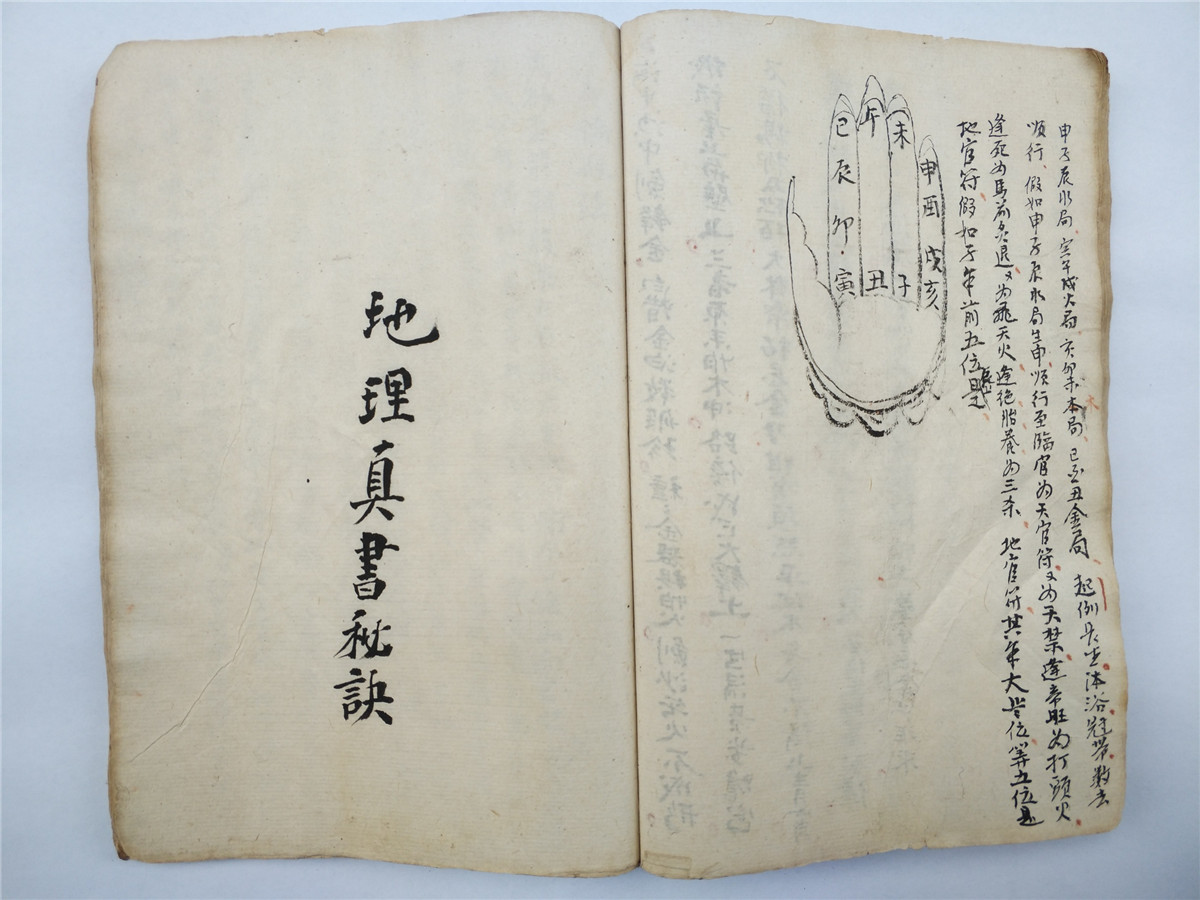 申子辰水局 寅午戌火局 亥卯未本局 巳酉丑金局 起例長生沐浴冠帶数去
順行、假如申子辰水局生申順行至臨官为天官符又为天禁逢帝旺为打頭火
逢死为馬前炙退又为飛天火逢绝胎养为三杀 地官符其年太岁位第五位是
地官符假如子年前五位是
辰
木
巳 午 未 申
辰 酉
卯 戌
寅 丑 子 亥
地理真書秘訣